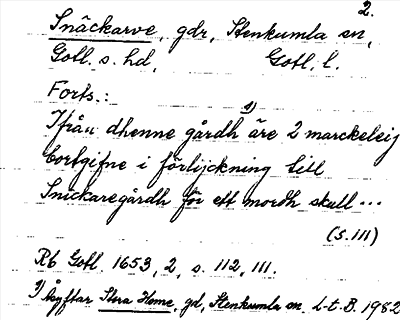 2.
Snäckarve, gdr, Stenkumla sn,
Gotl. s. hd, Gotl. l.
Forts.:
Ifrån dhenne gårdh äre 2 marckeleij 1)
bortgifne i förlijckning till
Snickaregårdh för ett mordh skull...
(s. 111)
Rb Gotl. 1653, 2, s. 112, 111.
1) Åsyftar Stora Home, gd, Stenkumla sn. L-t. B. 1982